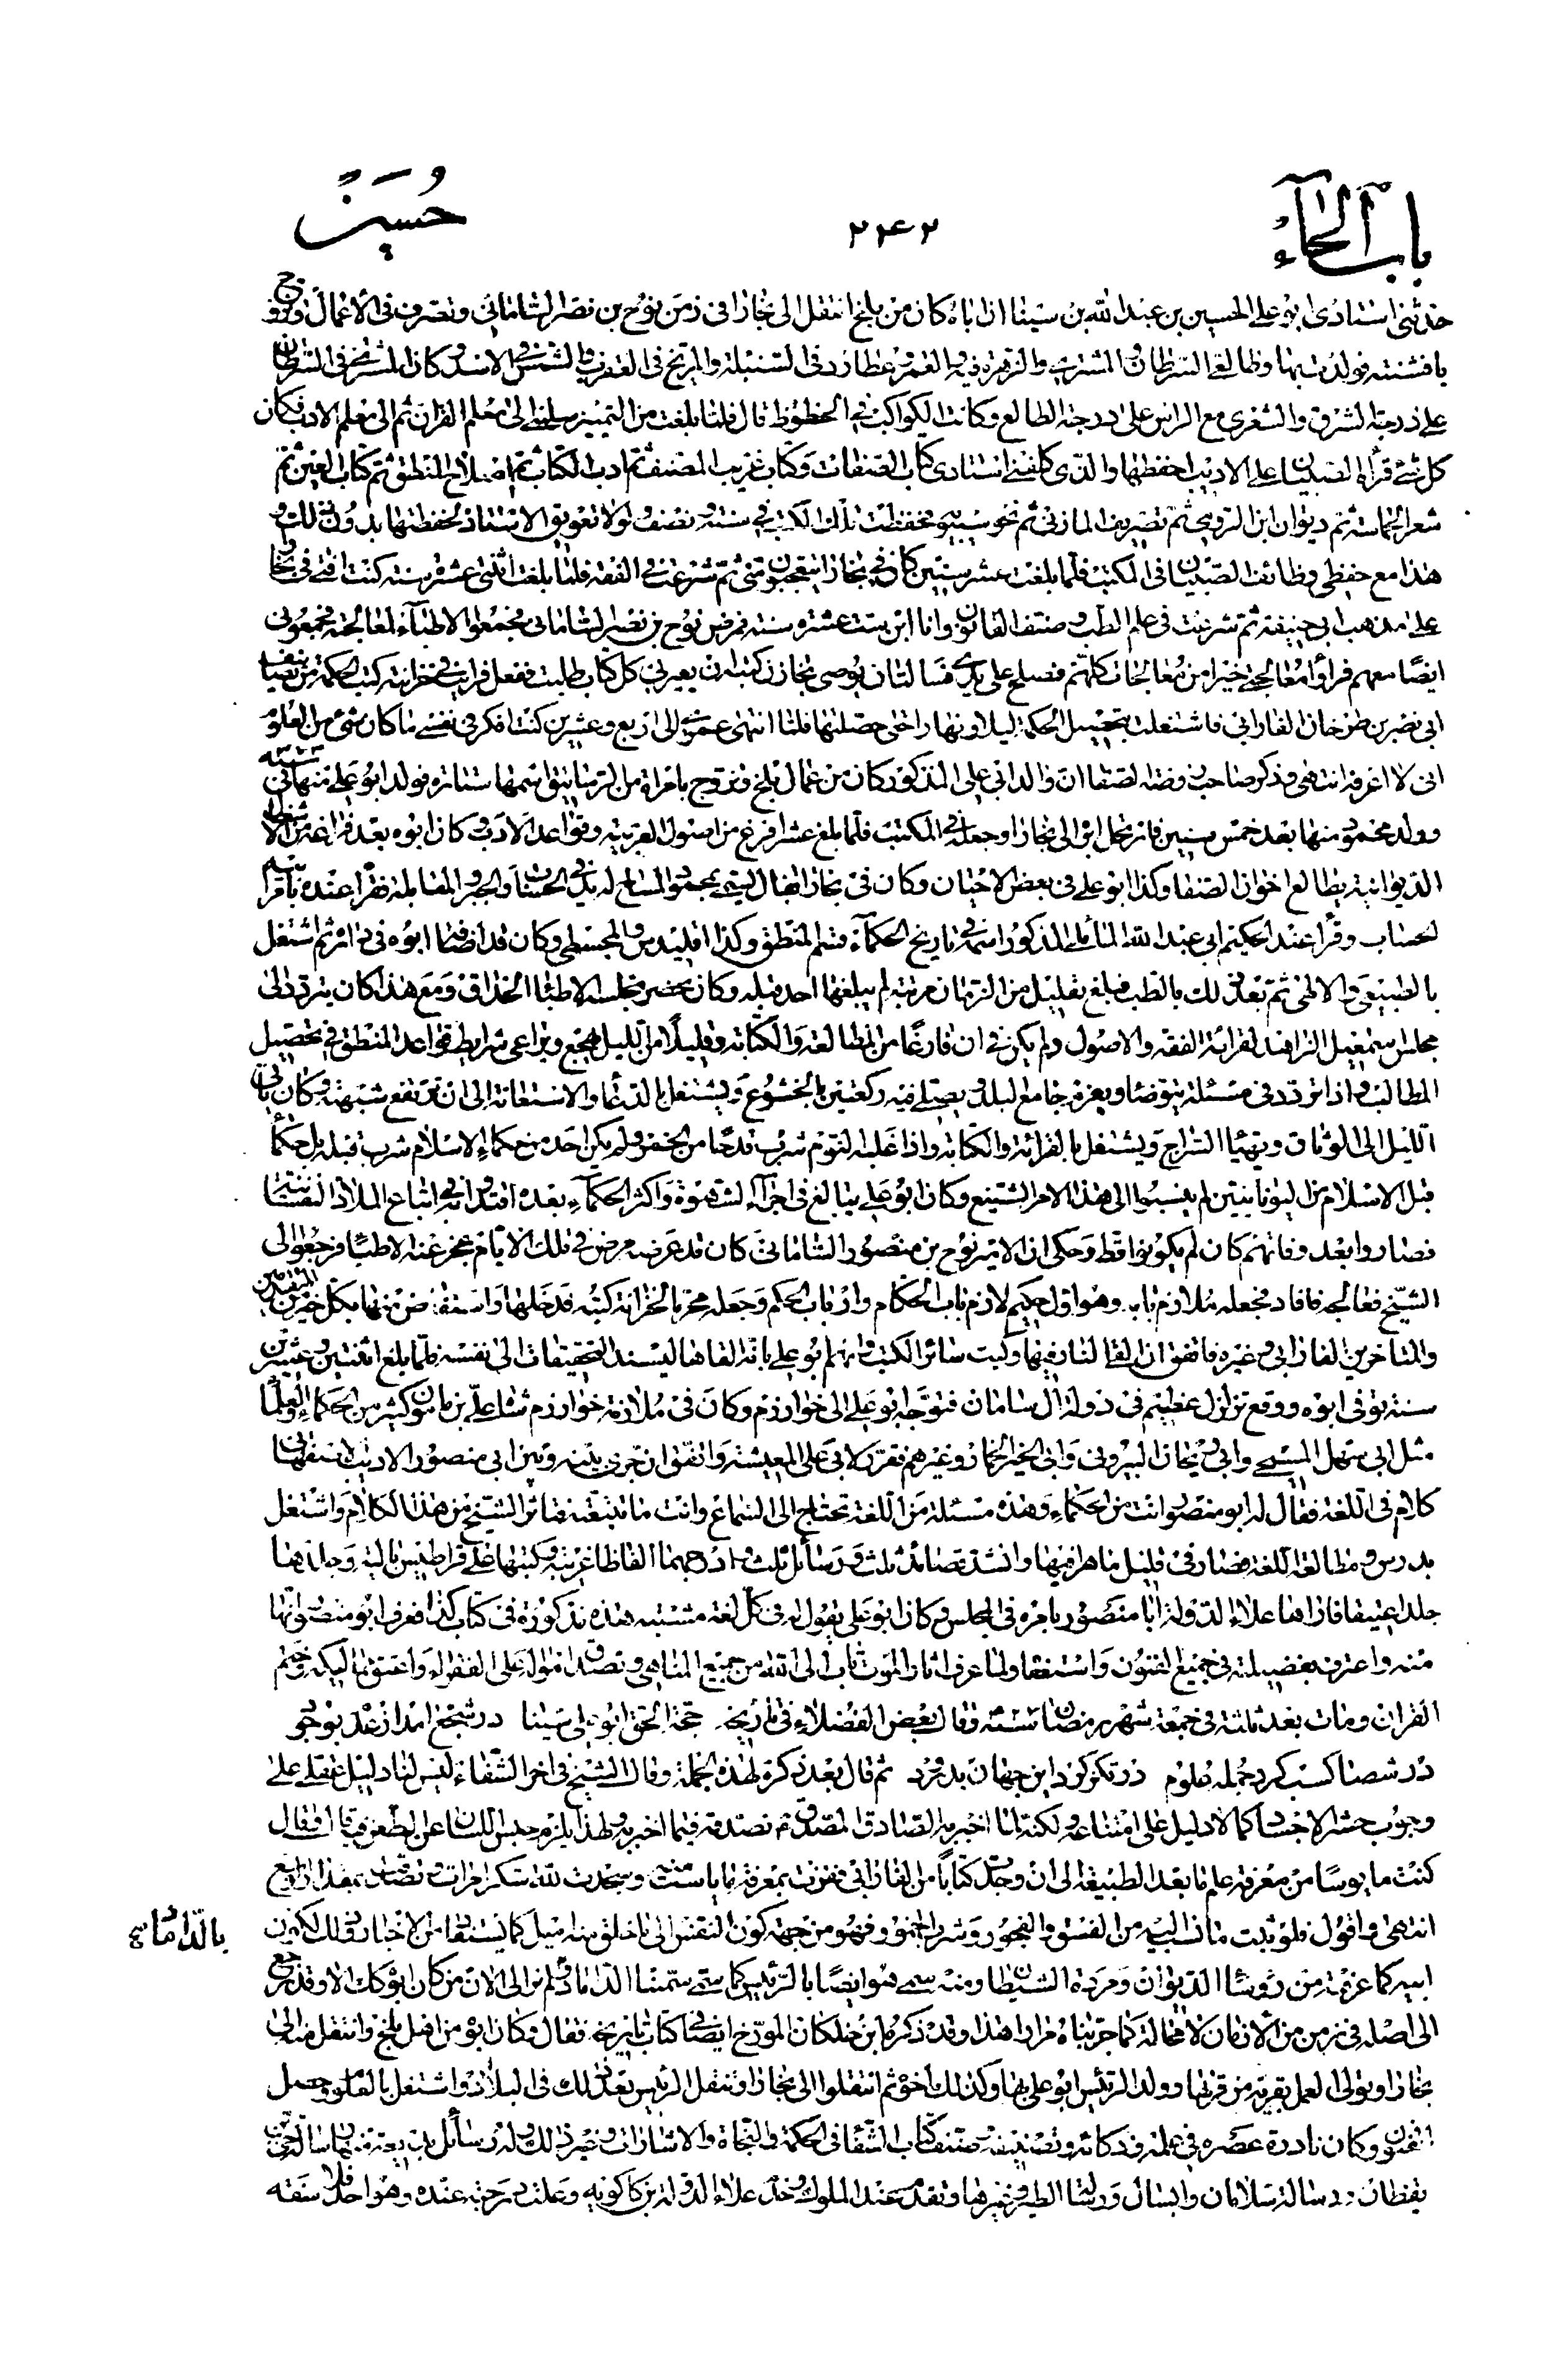 باب الحاء
٢٤٢
حسين
حدثنى استادى ابو على الحسين بن عبد الله بن سينا ان اباه كان من بلخ انتقل الى بخارا فى زمن نوح بن نصر السامانى وتصرف فى الاعمال وتزوج
بافشنه فولدت بها وطالعى السرطان والمشترى والزهرة فيه والقمر وعطارد فى السنبلة والمريخ فى العقرب والشمس فى الاسد وكان المشترى فى السرطان
على درجة الشرف والشعرى مع الراس على درجة الطالع وكانت الكواكب فى الحظوظ قال فلما بلغت من التميز سلمنى الى معلم القران ثم الى معلم الادب فكان
كل شئ قرأه الصبيان على الاديب احفظها والذى كلفنى استادى كتاب الصفات وكتاب غريب المصنف ثم ادب الكتاب ثم اصلاح المنطق ثم كتاب العين ثم
شعر الحماسة ثم ديوان ابن الرومى ثم تصريف المازنى ثم نحو سيبويه فحفظت تلك الكتب فى سنة ونصف ولولا تعويق الاستاذ لحفظتها بدون ذلك و
هذا مع حفظى وظائف الصبيان فى المكتب فلما بلغت عشر سنين كان فى بخارا يتعجبون منى ثم شرعت فى الفقه فلما بلغت اثنتى عشرة سنة كنت افتى فى بخارا
على مذهب ابى حنيفة ثم شرعت فى علم الطب وصنفت القانون وانا ابن ست عشرة سنة فمرض نوح بن نصر السامانى فجمعوا الاطباء لمعالجته فجمعونى
ايضا معهم فرأوا معالجتى خيرا من معالجات كلهم فصلح على يدى فسالت ان يوصى بخازن كتبه ان يعيرنى كل كتاب طلبت ففعل فرايت فى خزانته كتب الحكمة من تصنيفات
ابى نصر بن طرخان الفارابى فاشتغلت بتحصيل الحكمة ليلا ونهارا حتى حصلتها فلما انتهى عمرى الى اربع وعشرين كنت افكر فى نفسى ما كان شئ من العلوم
انى لا اعرفه انتهى وذكر صاحب روضة الصفا ان والد ابى على المذكور كان من عمال بلخ وتزوج بامراة من الرساتيق اسمها ستارة فولد ابو على منها فى سنة
وولد محمود منها بعد خمس سنين فارتحل ابوه الى بخارا وجعله فى المكتب فلما بلغ عشرا فرغ من اصول العربية وقواعد الادب وكان ابوه بعد فراغه من الاشغال
الديوانية يطالع اخوان الصفا وكذا ابو على فى بعض الاحيان وكان فى بخارا بقال يسمى بمحمود المساح له يد فى الحساب والجبر والمقابلة فقرأ عنده بامر ابيه
الحساب وقرأ عند الحكيم ابى عبد الله الناتلى المذكور اسمه فى تاريخ الحكماء قسم المنطق وكذا اقليدس والمجسطى وكان قد اضافه ابوه فى داره ثم اشتغل
بالطبيعى والالهى ثم بعد ذلك بالطب فبلغ بقليل من الزمان مرتبة لم يبلغها احد قبله وكان يحضر مجلسه الاطباء الحذاق ومع هذا كان يتردد الى
مجلس اسمعيل الزاهد لقرائة الفقه والاصول ولم يكن فى ان فارغا من المطالعة والكتابة وقليلا من الليل يهجع ويراعى شرايط قواعد المنطق فى تحصيل
المطالب واذا تردد فى مسئلة يتوضأ ويعزم جامع البلد ويصلى فيه ركعتين بالخشوع ويشتغل بالدعاء والاستغاثة الى ان ترتفع شبهته وكان ياتى
الليل الى الوثاق ويهيأ السراج ويشتغل بالقرائة والكتابة واذا غلبه النوم شرب قدحا من الخمر ولم يكن احد من حكماء الاسلام شرب قبله بل حكماء
قبل الاسلام من اليونانيين لم ينسبوا الى هذا الامر الشنيع وكان ابو على يبالغ فى اجراء الشهوة واكثر الحكماء بعده اقتدوا به فى اتباع الملاذ النفسانية
فصاروا بعد وفاتهم كان لم يكونوا قط وحكى ان الامير نوح بن منصور السامانى كان قد عرضه مرض فى تلك الايام عجز عنه الاطباء فرجعوا الى
الشيخ فعالجه فافاد فجعله ملازم بابه وهو اول حكيم لازم باب الحكام وارباب الحكم وجعله محرما بالخزانة كتبه فدخلها واستفاض منها بكل خير من المتقدمين
والمتاخرين الفارابى وغيره فاتفق ان القى النار فيها وكتب سائر الكتب واتهم ابو على بانه القاها ليسند التحقيقات الى نفسه فلما بلغ اثنتين وعشرين
سنة توفى ابوه ووقع تزلزل عظيم فى دولة ال سامان فتوجه ابو على الى خوارزم وكان فى ملازمة خوارزم شاه على بن مامون كثير من الحكماء والعلماء
مثل ابى سهل المسيحى وابى ريحان البيرونى وابى الخير الخمار وغيرهم فقرر لابى على المعيشة واتفق ان جرى بينه وبين ابى منصور الاديب الاصفهانى
كلام فى اللغة فقال له ابو منصور انت من الحكماء وهذه مسئلة من اللغة تحتاج الى السماع وانت ما تتبعته فتاثر الشيخ من هذا الكلام واشتغل
بدرس ومطالعة اللغة فصار فى قليل ماهرا فيها وانشد قصائد ثلث ورسائل ثلث وادرجها الفاظا غريبة وكتبها على قراطيس بالية وجلدها
جلدا عتيقا فاراها علاء الدولة ابا منصور بامره فى المجلس وكان ابو على يقول له فى كل لغة مشتبه هذه مذكورة فى كتاب كذا فعرف ابو منصور انها
منه واعترف بفضيلته فى جميع الفنون واستغفر ولما عرف اثار الموت تاب الى الله من جميع المناهى وتصدق امواله على الفقراء واعتق مماليكه وختم
القران ومات بعد ثلثة فى جمعة شهر رمضان سنة وقال بعض الفضلاء فى تاريخه حجة الحق ابو على سينا در شجع امد از عدم بوجود
در شصا كسب كرد جمله علوم در تكز كرد اين جهان بدرود ثم قال بعد ذكره لهذه الجملة وقال الشيخ فى اخر الشفاء ليس لنا دليل عقلى على
وجوب حشر الاجساد كما لا دليل على امتناعه ولكنه لما اخبر به الصادق المصدق نصدقه فيما اخبر به ولهذا يلزم حبس اللسان عن الطعن فيه قال
كنت مايوسا من معرفة علم ما بعد الطبيعة الى ان وجدت كتابا من الفارابى ففزت بمعرفة ما يأست منه وسجدت لله شكرا مرات وتصدقت بهذا الواقع
انتهى واقول فلو ثبت ما نسب اليه من الفسق والفجور وشرب الخمور فهو من جهة كون النفس الى ما خلق منه اميل كما يستفاد من الاخبار وذلك لكون
ابيه كما عرفته من رؤساء الديوان ومردة الشيطان ومنه سمى هو ايضا بالرئيس كما سمى سمينا الداماد لم نر الى الان من كان ابوه كذلك الا وقد رجع
الى اصله فى زمن من الازمان لا محالة كما جربناه مرارا هذا وقد ذكره ابن خلكان المورخ ايضا فى كتاب تاريخه فقال وكان ابوه من اهل بلخ وانتقل منه الى
بخارا وتولى العمل بقرية من قراها وولد الرئيس ابو على بها وكذلك اخوه ثم انتقلوا الى بخارا وتنقل الرئيس بعد ذلك فى البلاد واشتغل بالعلوم وحصل
الفنون وكان نادرة عصره فى علمه وذكائه وتصنيفه وصنف كتاب الشفا فى الحكمة والنجاة والاشارات وغير ذلك وله رسائل بديعة منها رسالة حى بن
يقظان ورسالة سلامان وابسال ورسالة الطير وغيرها وتقدم عند الملوك وخدم علاء الدولة بن كاكويه وعلت درجته عنده وهو احد فلاسفة
بالداماد